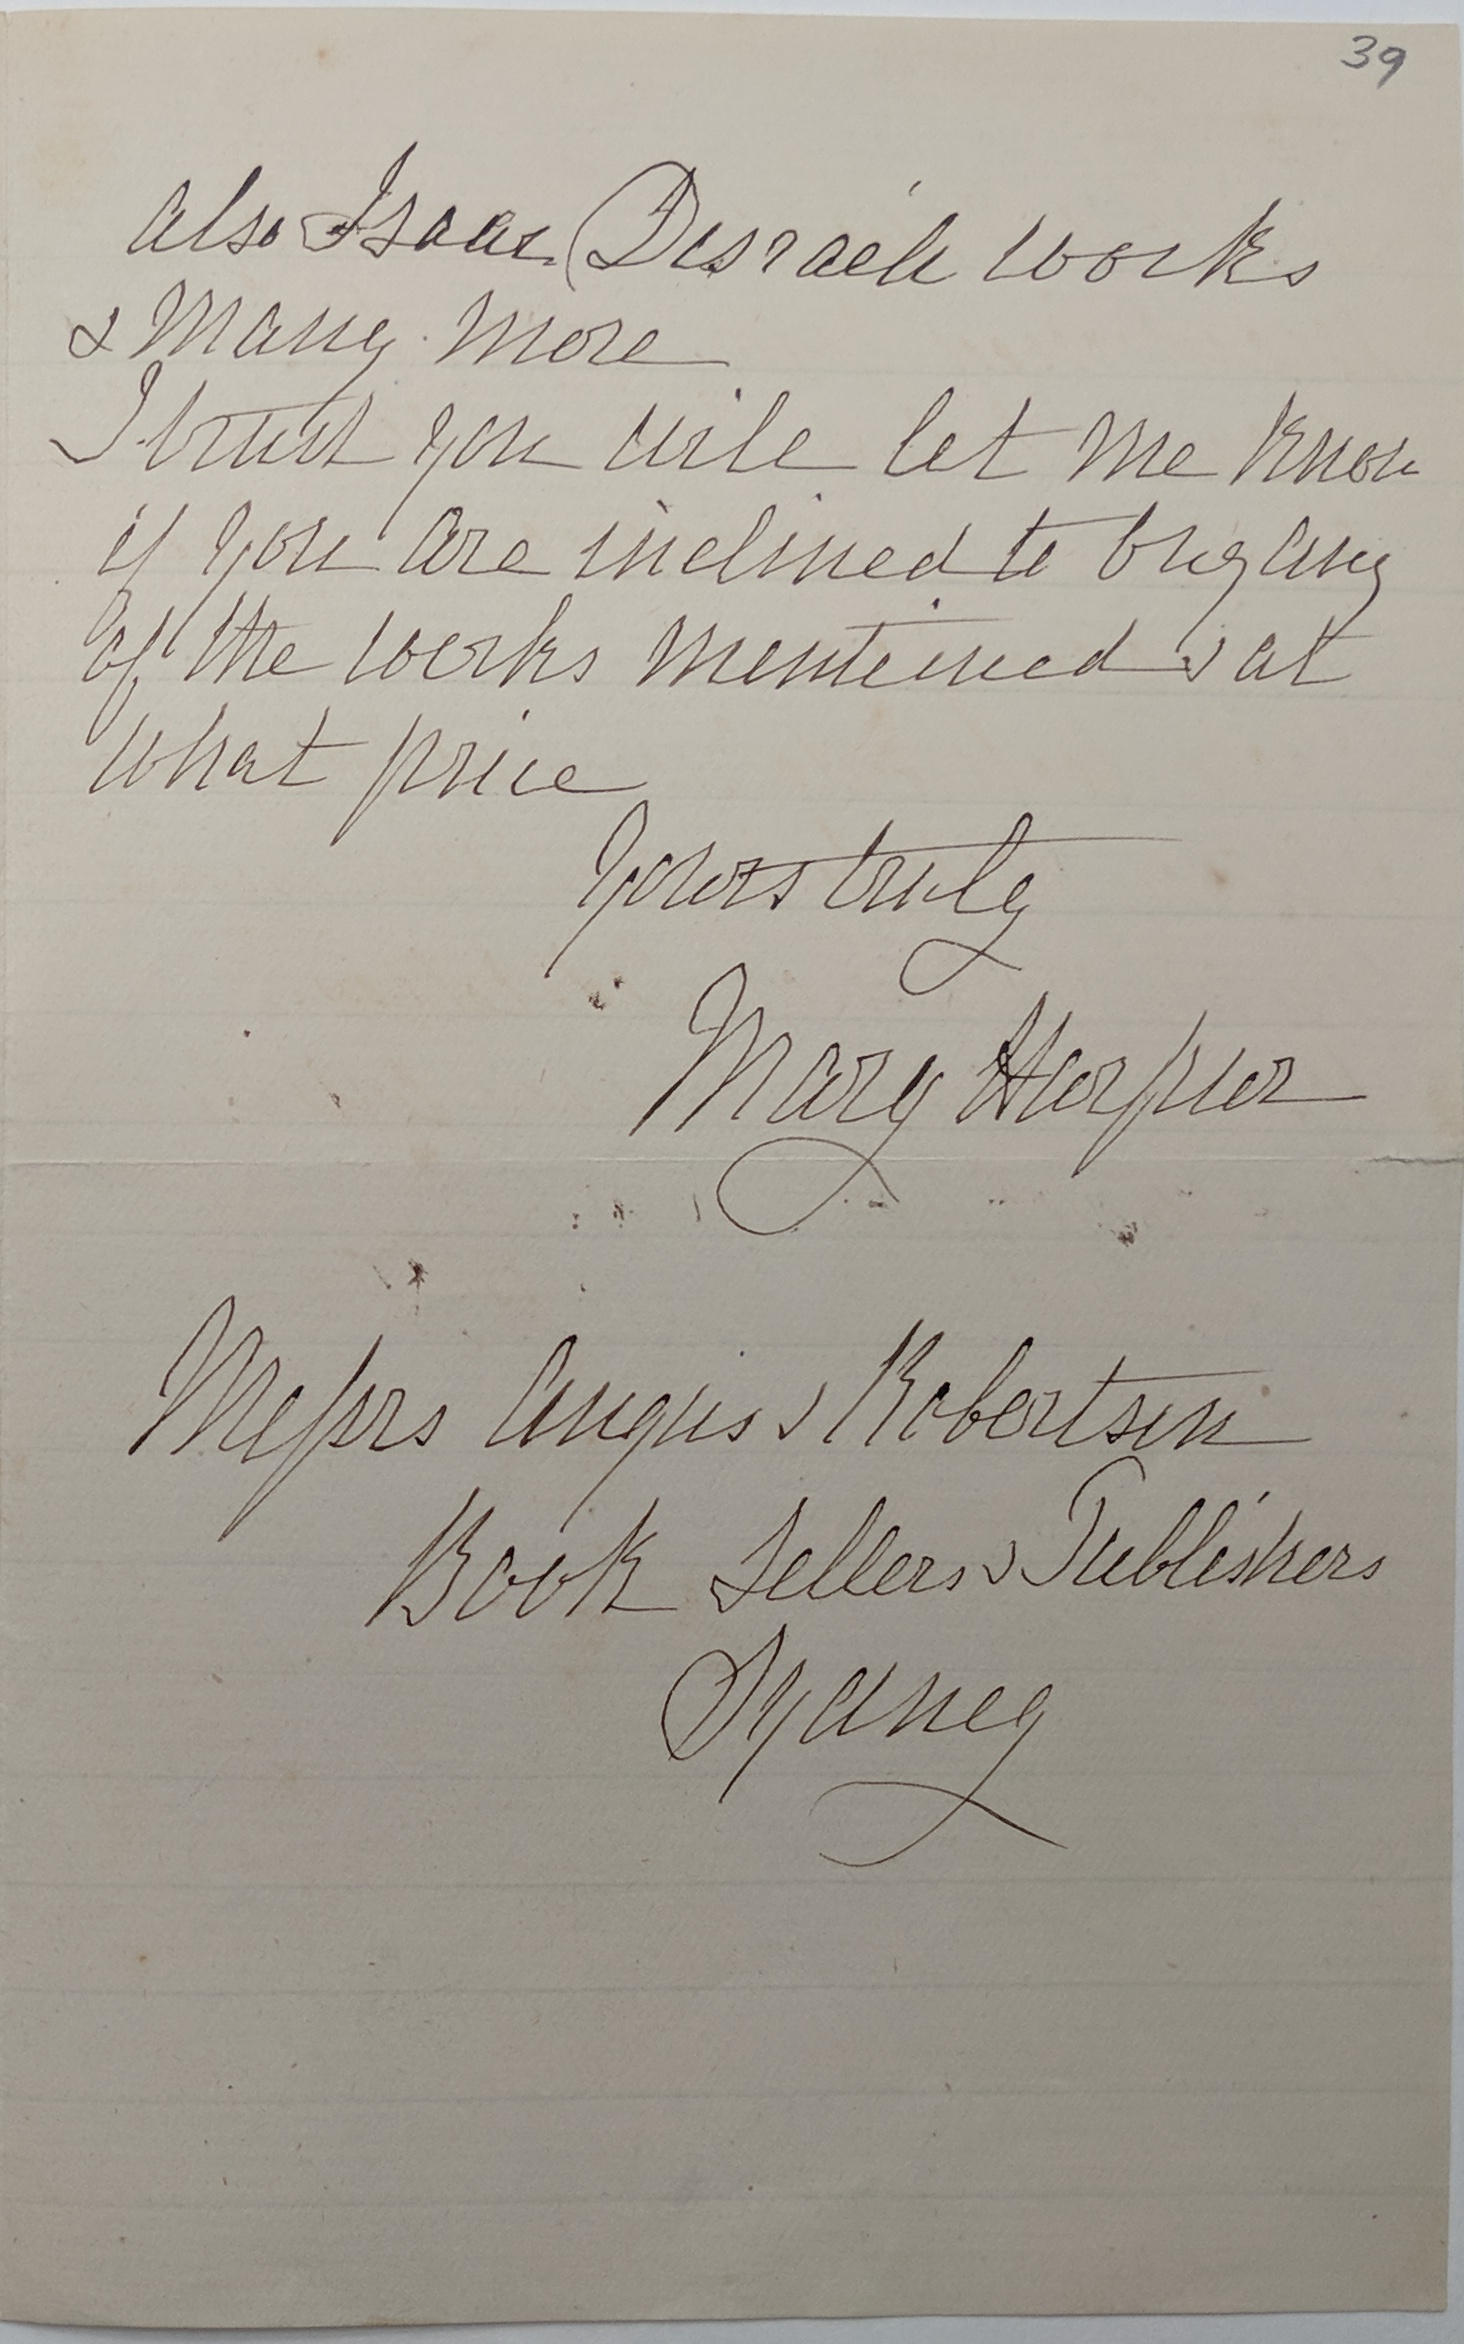 39
also Isaac Disraeli works
& Many More
I trust you will let me know
if you are inclined to buy any
of the works mentioned & at
what price
Yours truly
Mary Harpur
Messrs Angus & Robertson
Book Sellers & Publishers
Sydney